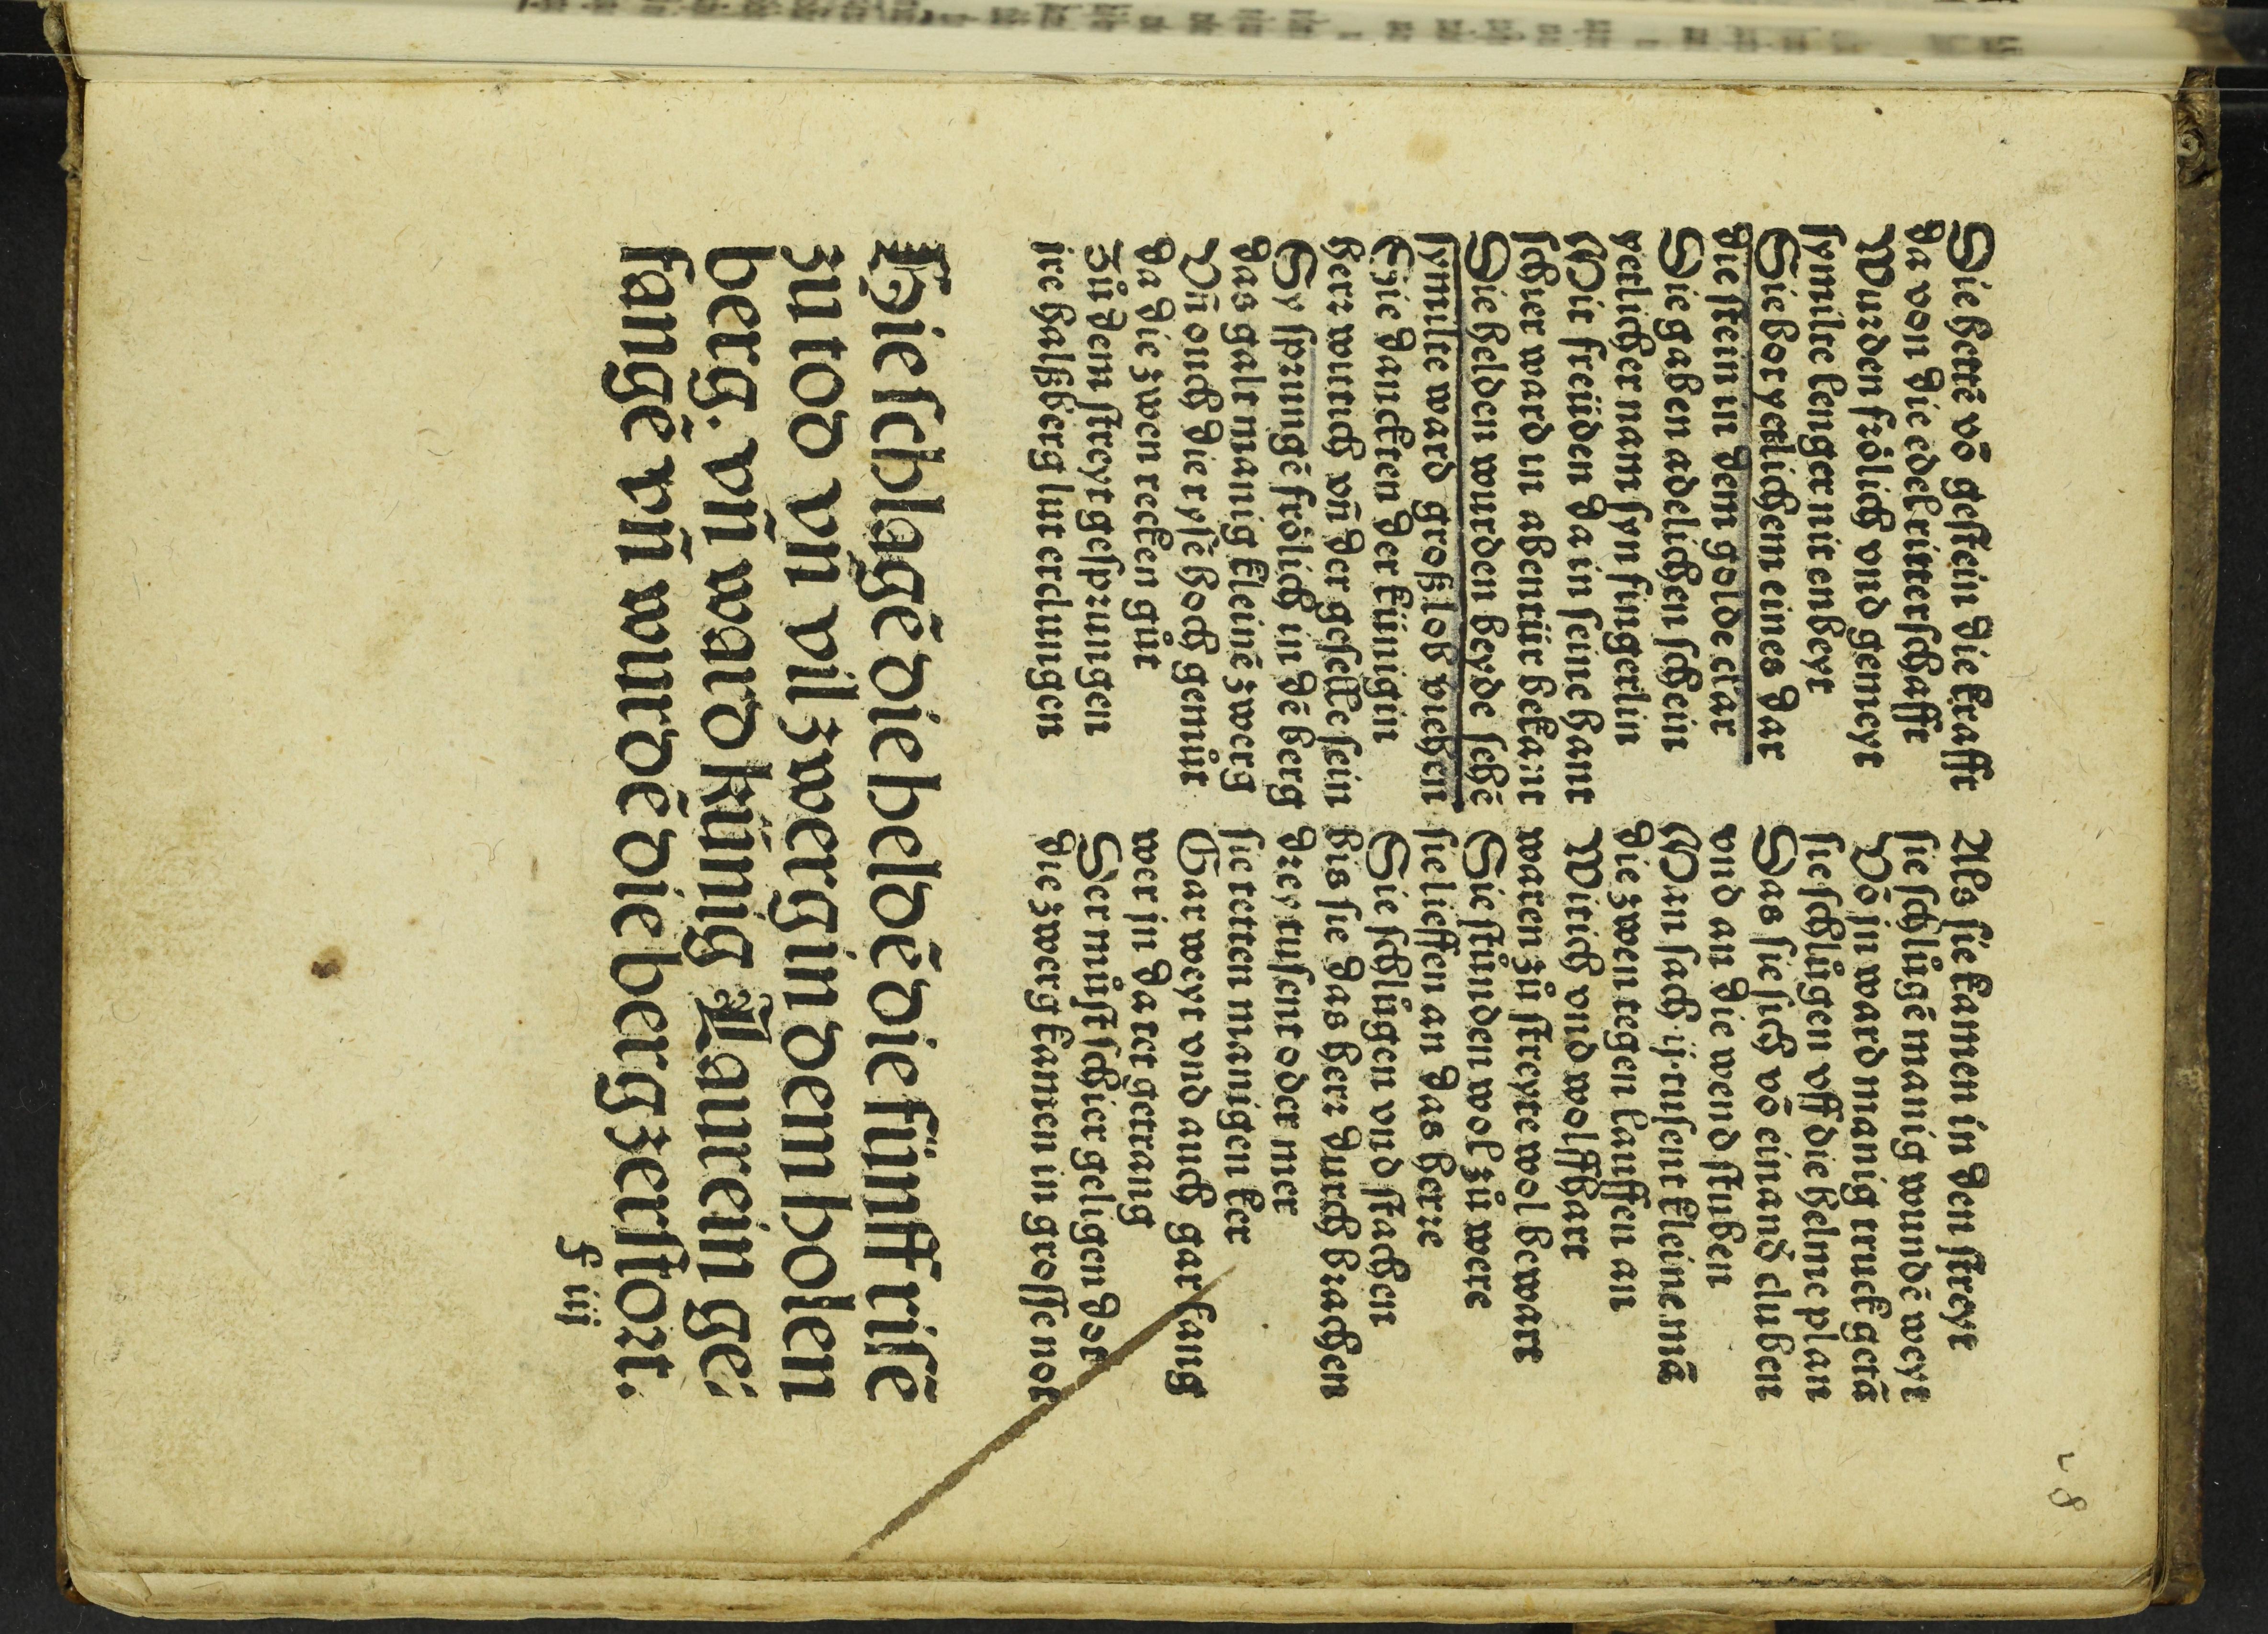 28
Die herrē vō gestein die krafft
da von die edel ritterschafft
Wurden frölich vnd gemeyt
synilte lenger nit enbeyt
Sie bot yetlichem eines dar
die stein in dem golde clar
Sie gaben adelichen schein
yetlicher nam syn fingerlin
Mit freüden da in seine hant
schier ward in abentür bekant
Die helden wurden beyde sehē
synilte ward groß lob viehen
Sie danckten der künigin
herr wittich vñ der geselle sein
Sy sprungē frölich in dē berg
das galt manig kleinē zwerg
Vñ ouch die rysē hoch gemůt
da die zwen recken gůt
Zů dem streyt gesprungen
ire halßberg lut erclungen
Als sie kamen in den streyt
sie schlůgē manig wundē weyt
Vō in ward manig truck getā
sie schlůgen vff die helme plan
Das sie sich vō einand cluben
vnd an die wend stuben
Man sach ij. tusent kleine mā
die zwen tegen lauffen an
Witich vnd wolffhart
waren zů streyte wol bewart
Sie stůnden wol zů were
sie lieffen an das herre
Sie schlůgen vnd stachen
bis sie das herr durch brachen
drey tusent oder mer
sie tetten manigen ker
Gar weyt vnd auch gar lang
wer in da tet getrang
Der můst schier geligen dot
die zwerg kamen in grossen not
Hie schlagē die heldē die fünff risē
zu tod vñ vil zwerg in dem holen
berg. vñ ward künig Laurein ge⸗
fangē vñ wurdē die berg zerstort.
f iij